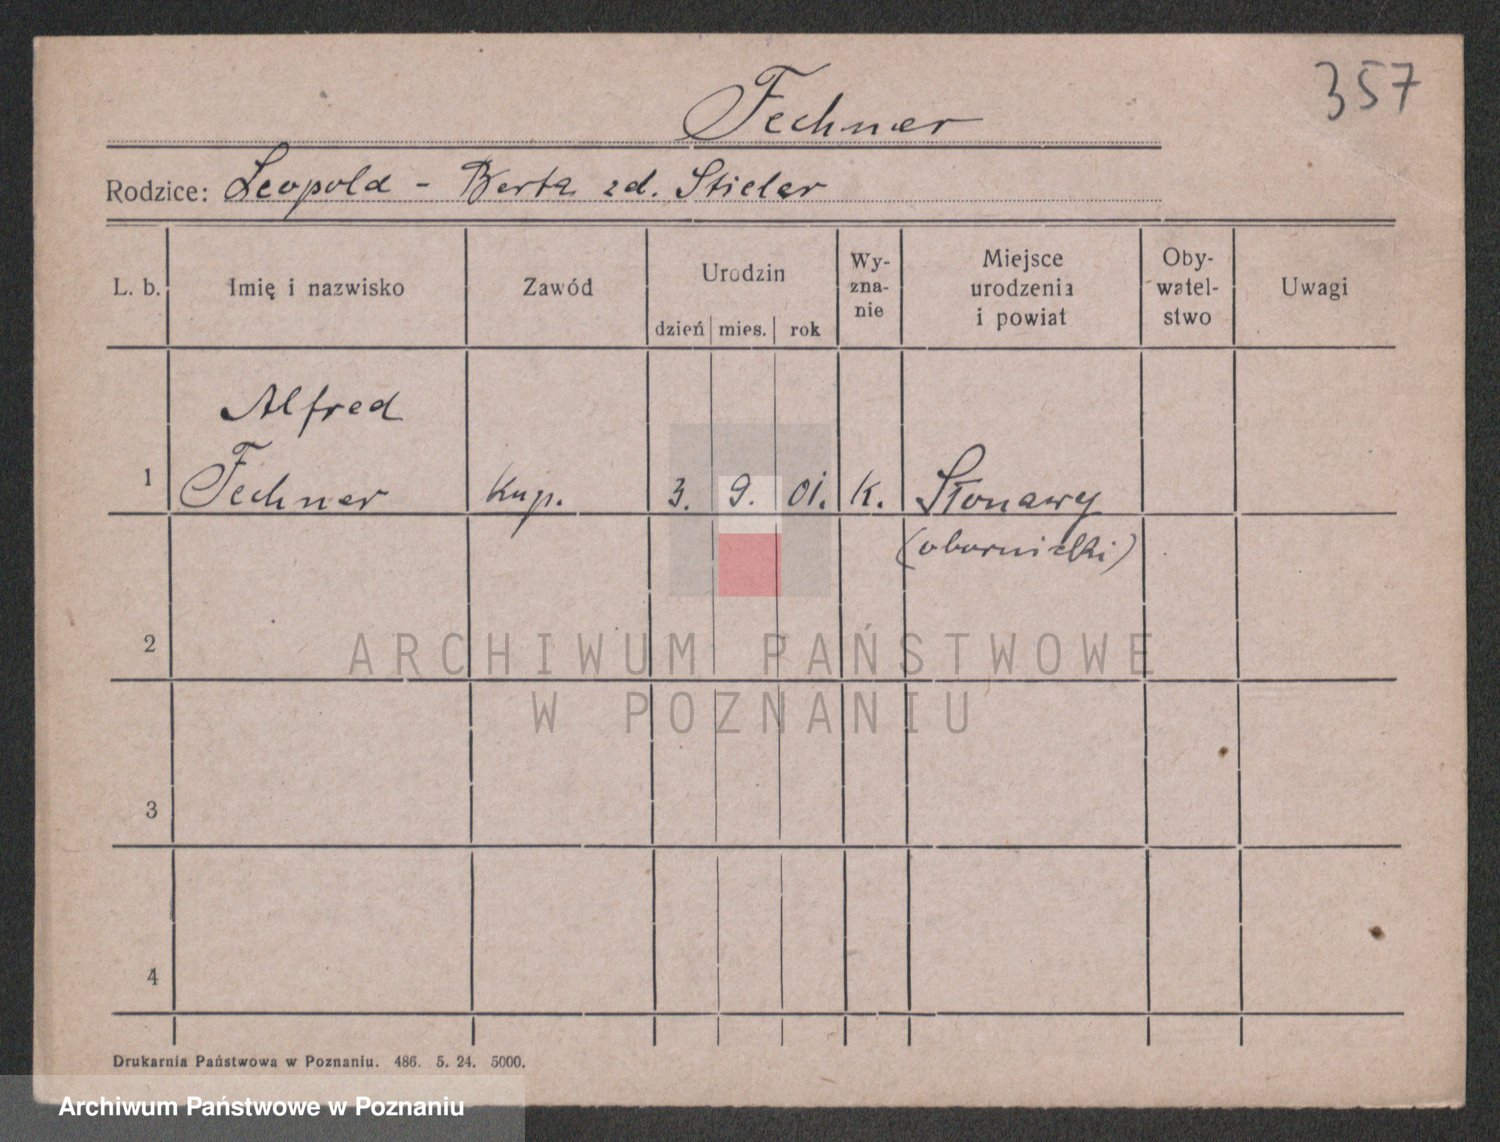 357
Fechner
Rodzice: Leopold - Berta zd. Stieler
L. b. Imię i nazwisko Zawód Urodzin Wy-zna-nie Miejsce urodzenia i powiat Oby-watel-stwo Uwagi
dzień mies. rok
Alfred
1 Fechner Kup. 3. 9. 01. K. Słonawy
(obornicki)
2
ARCHIWUM PAŃSTWOWE
W POZNANIU
3
4
Drukarnia Państwowa w Poznaniu. 486. 5. 24. 5000.
Archiwum Państwowe w Poznaniu